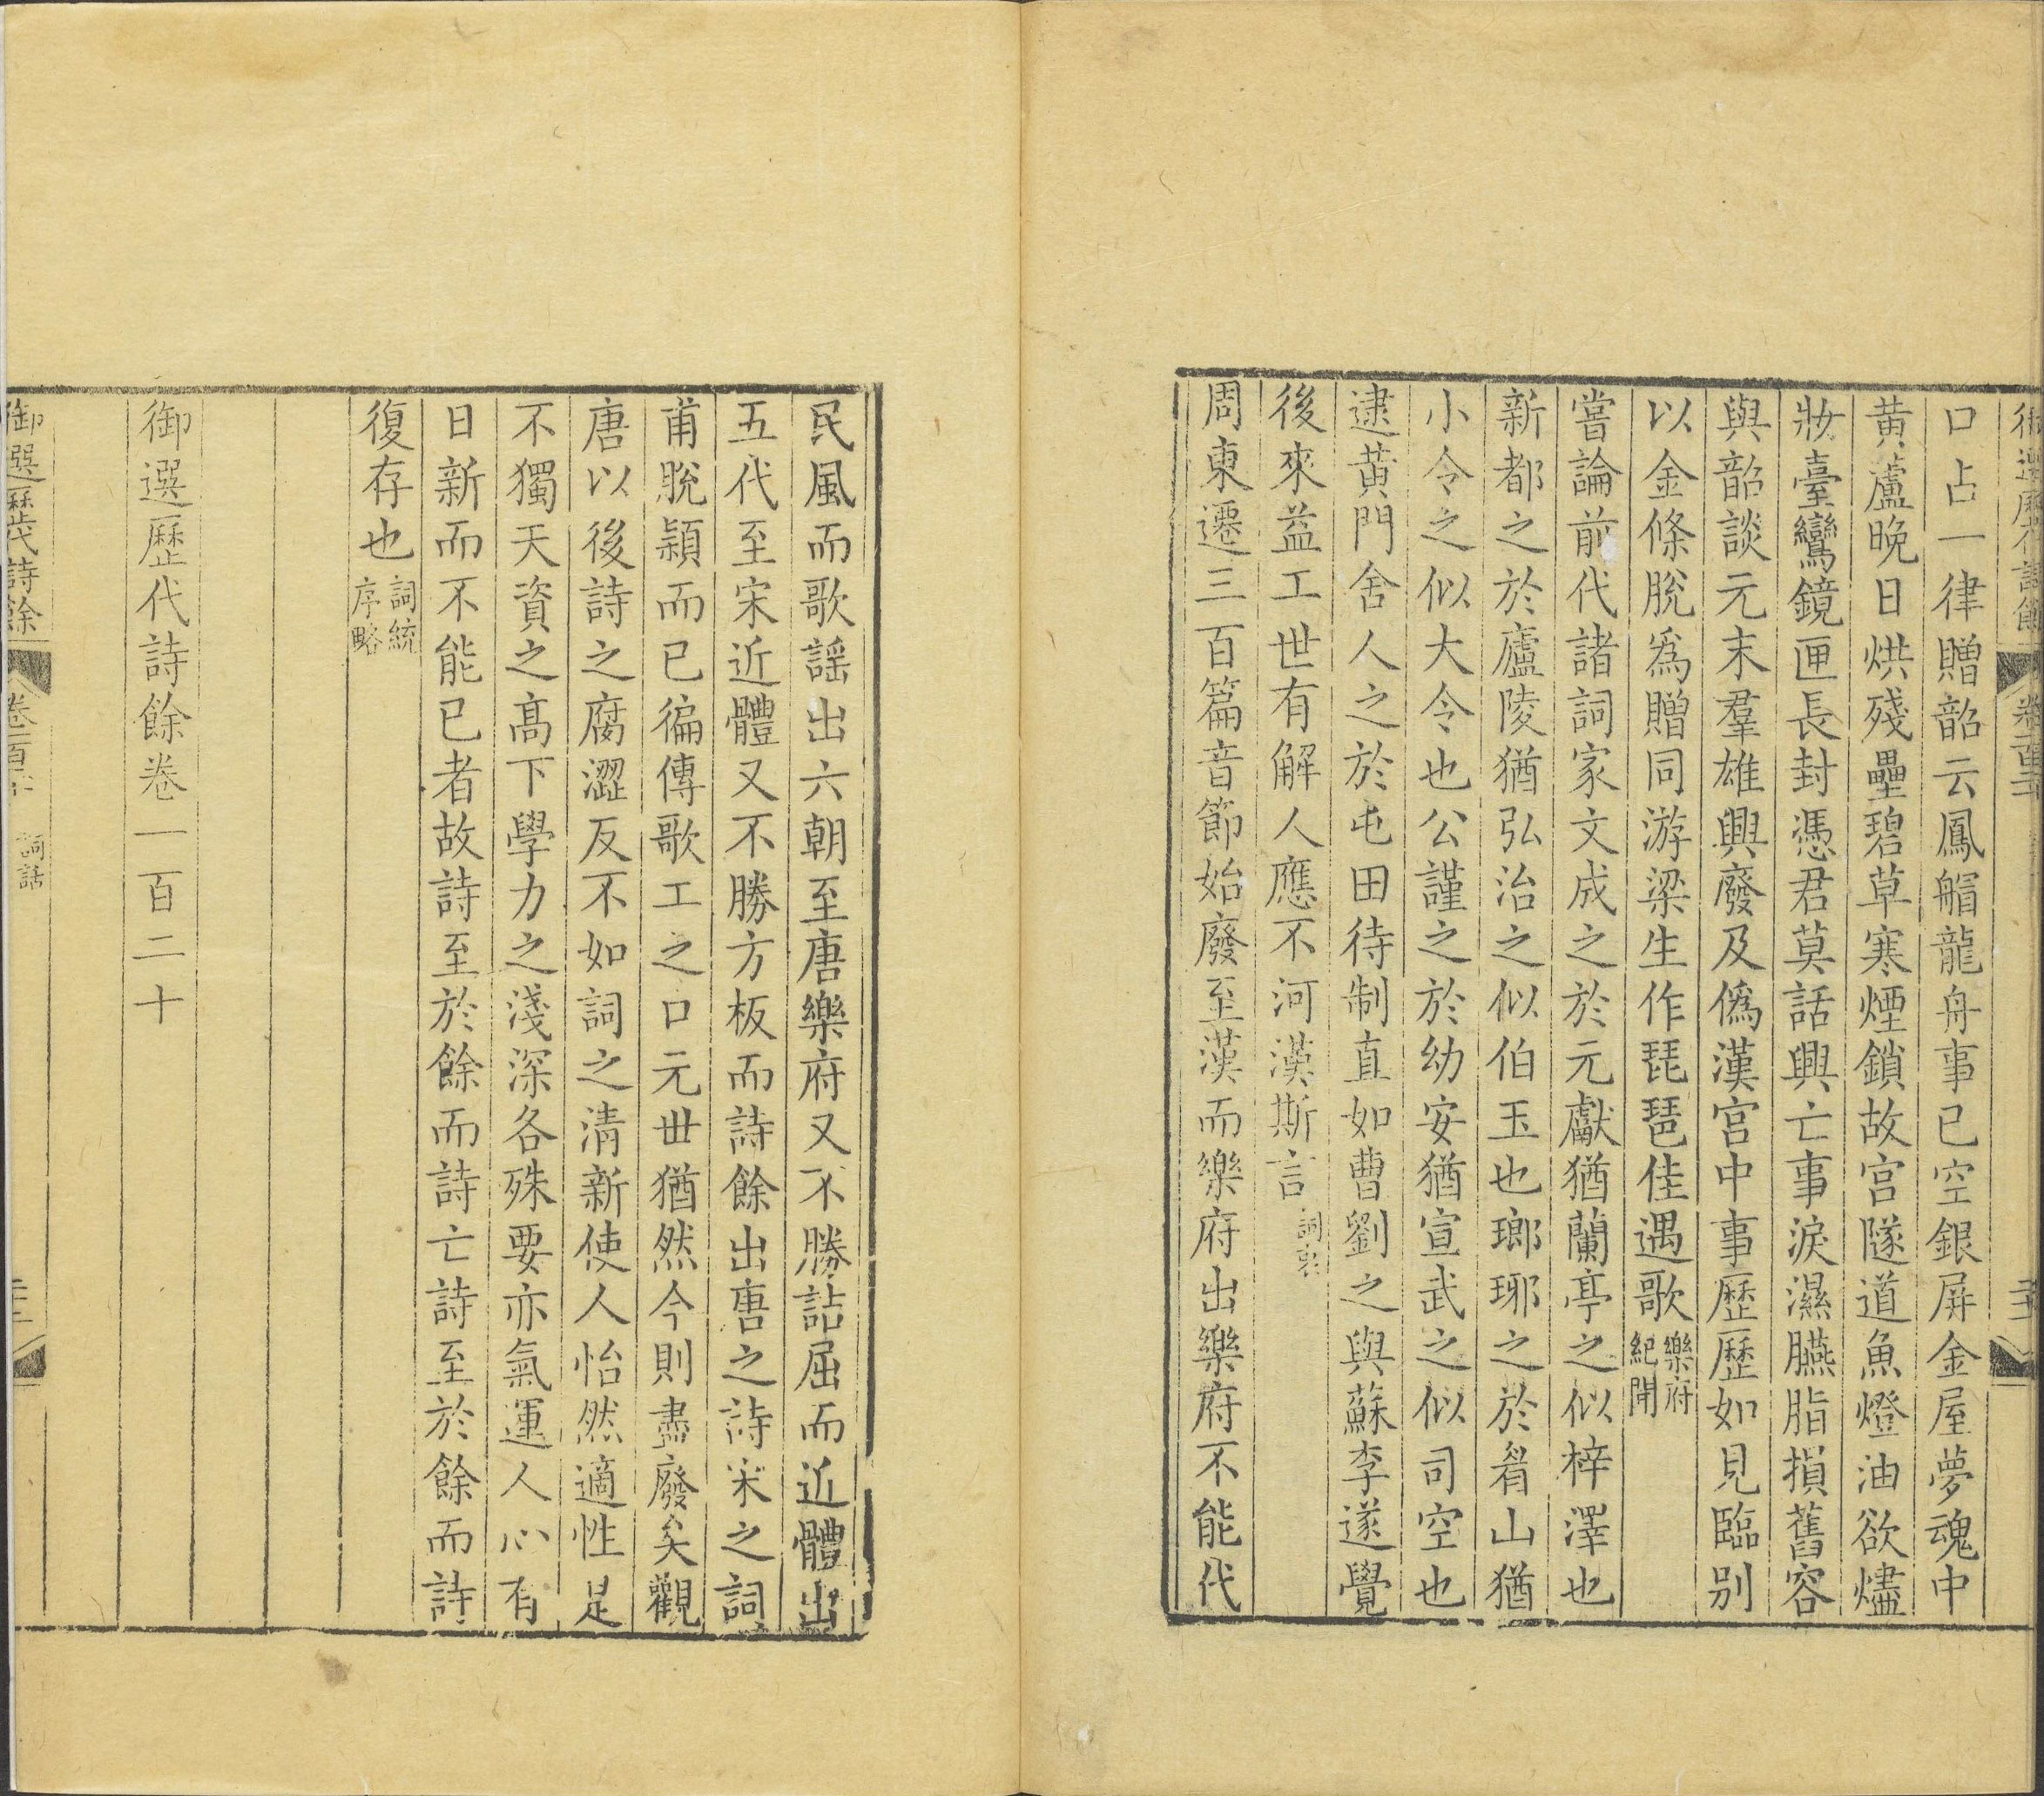 御選歷代詩餘 卷一百二十
口占一律贈韶云鳳艒龍舟事已空銀屏金屋夢魂中
黃蘆晚日烘殘壘碧草寒煙鎖故宮隧道魚燈油欲燼
妝臺鸞鏡匣長封憑君莫話興亡事淚濕臙脂損舊容
與韶談元末羣雄興廢及僞漢宮中事歷歷如見臨別
以金條脫爲贈同游梁生作琵琶佳遇歌樂府紀聞
嘗論前代諸詞家文成之於元獻猶蘭亭之似梓澤也
新都之於廬陵猶弘治之似伯玉也瑯琊之於眉山猶
小令之似大令也公謹之於幼安猶宣武之似司空也
逮黃門舍人之於屯田待制直如曹劉之與蘇李遂覺
後來益工世有解人應不河漢斯言詞衷
周東遷三百篇音節始廢至漢而樂府出樂府不能代
民風而歌謠出六朝至唐樂府又不勝詰屈而近體出
五代至宋近體又不勝方板而詩餘出唐之詩宋之詞
甫脫穎而已徧傳歌工之口元世猶然今則盡廢矣觀
唐以後詩之腐澀反不如詞之清新使人怡然適性是
不獨天資之高下學力之淺深各殊要亦氣運人心有
日新而不能已者故詩至於餘而詩亡詩至於餘而詩
復存也詞統序略
御選歷代詩餘卷一百二十
御選歷代詩餘 卷一百二十 詞話